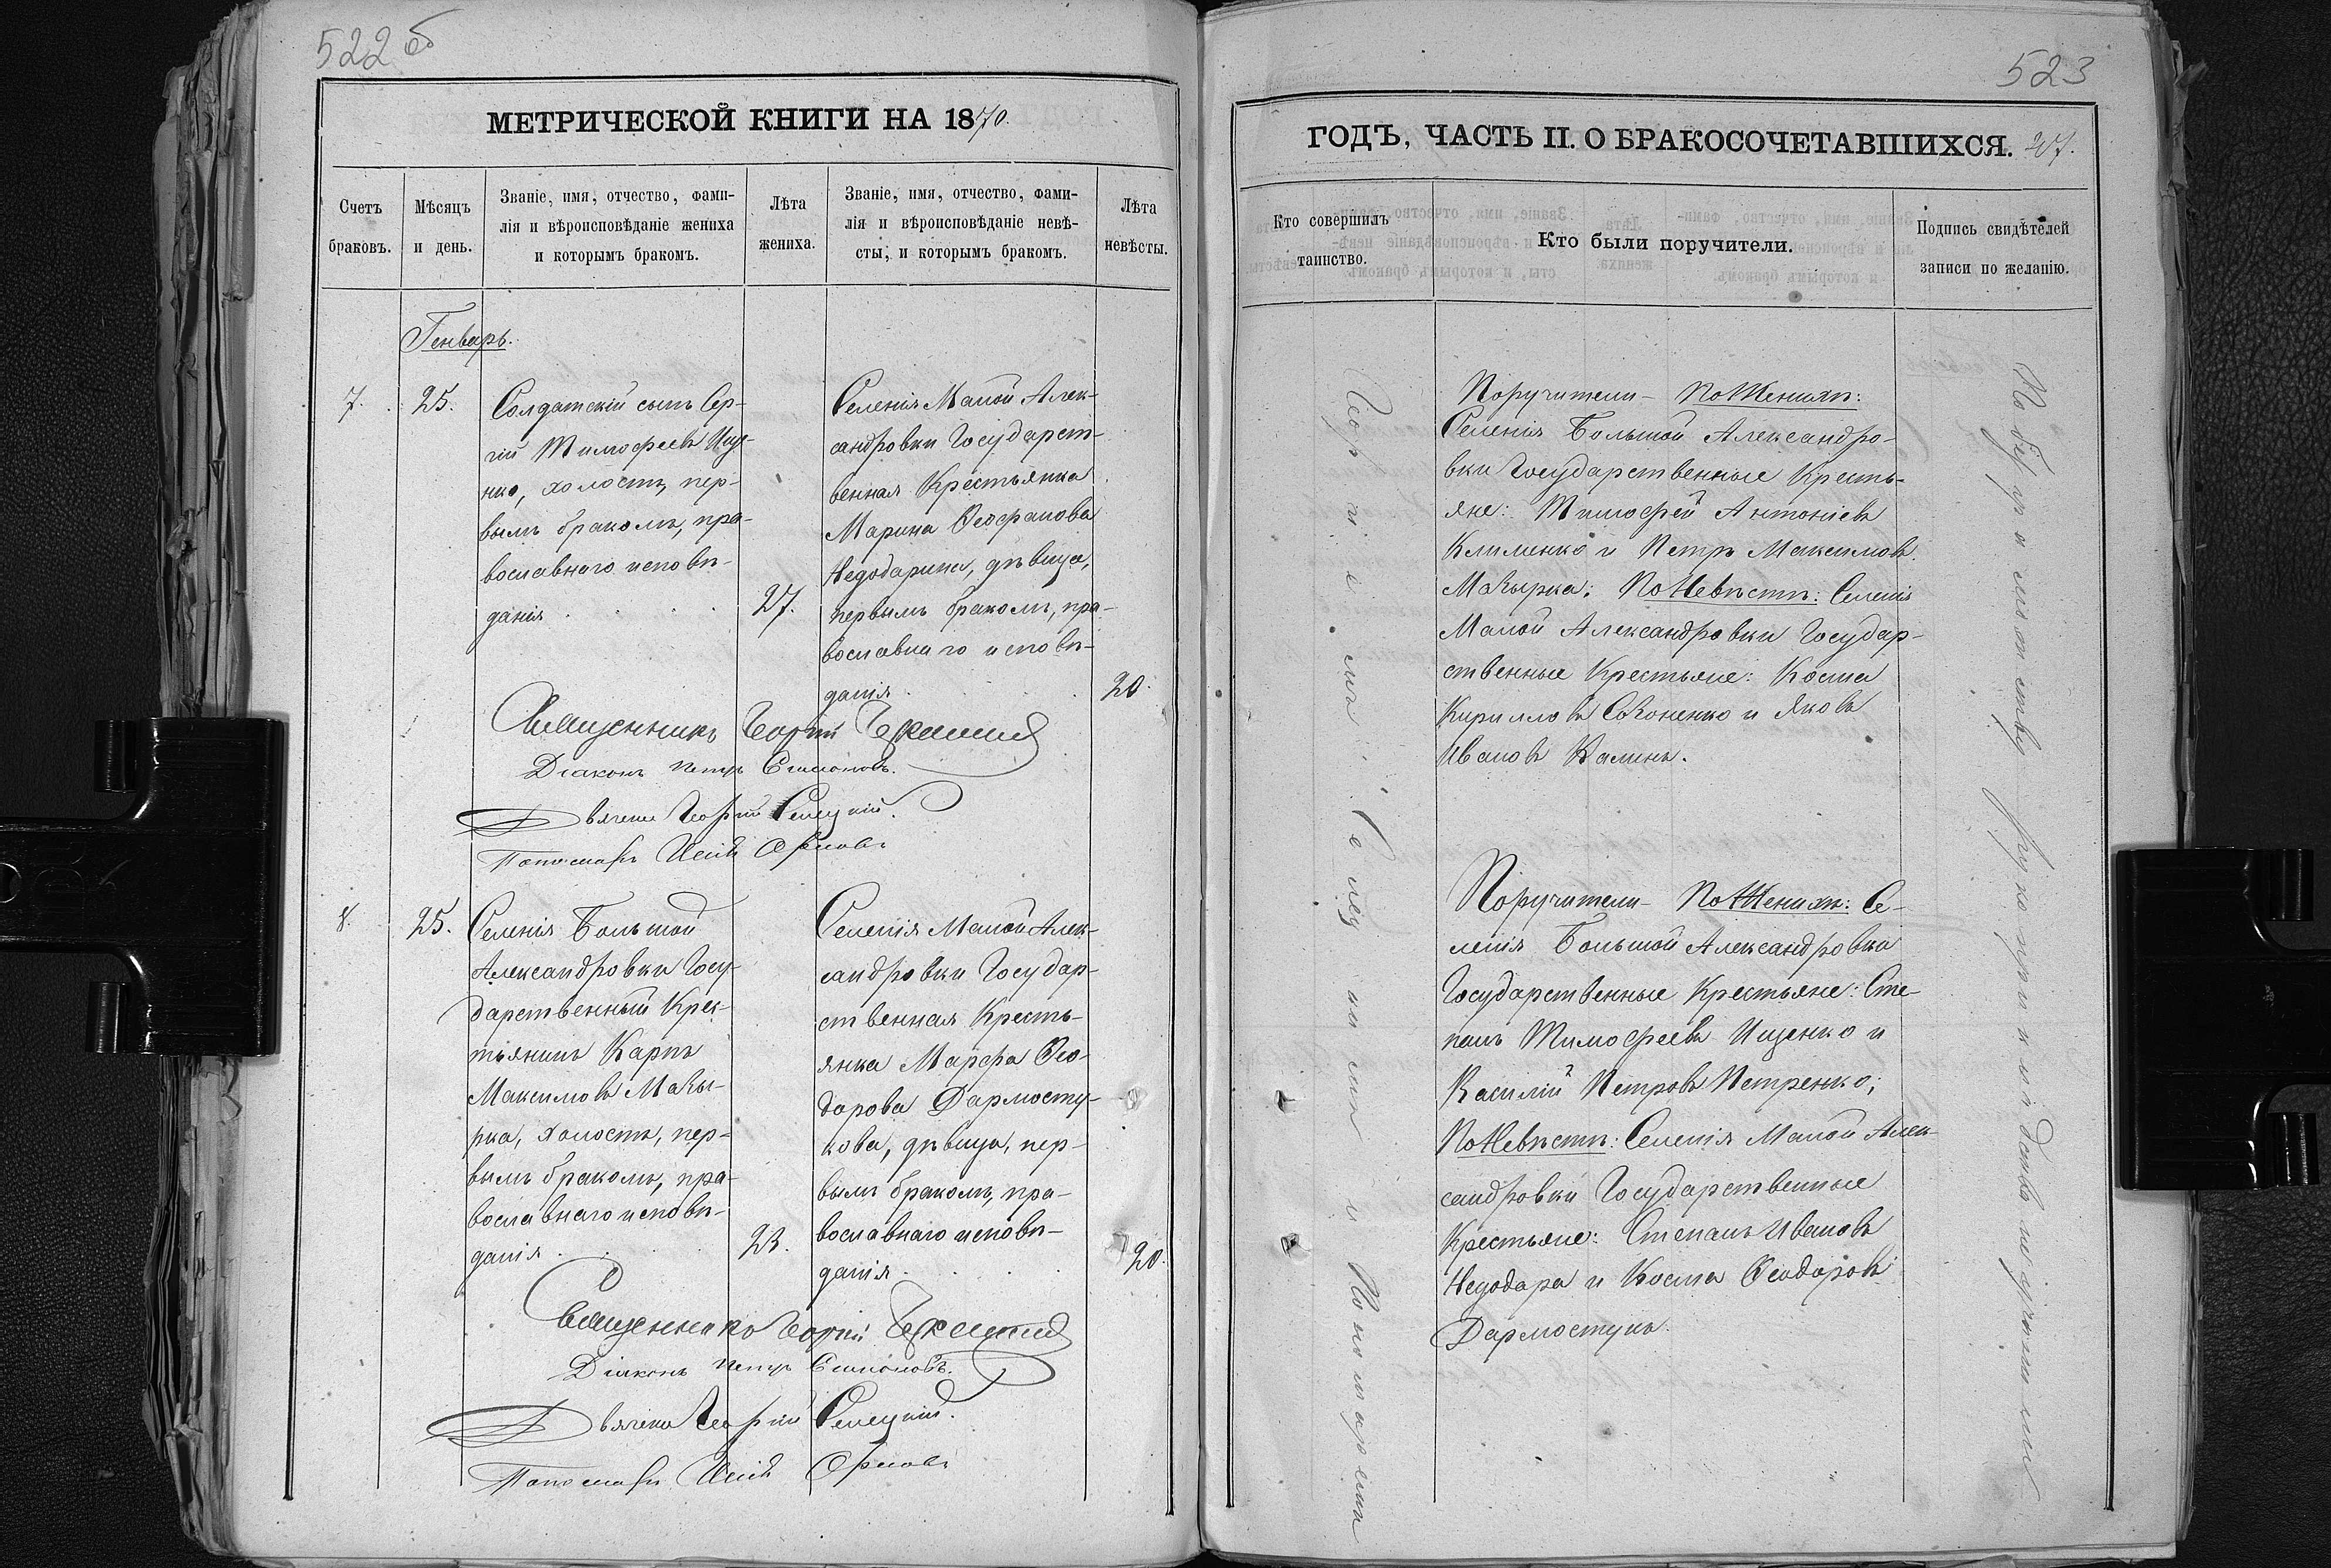 522 об
МЕТРИЧЕСКОЙ КНИГИ НА 1870.
Счетъ браковъ.
Мѣсяцъ и день.
Званіе, имя, отчество, фами-
лія и вѣроисповѣданіе жениха
и которымъ бракомъ.
Лѣта жениха.
Званіе, имя, отчество, фами-
лія и вѣроисповѣданіе невѣ-
сты, и которымъ бракомъ.
Лѣта невѣсты.
Генварь.
7.
25.
Солдатскій сынъ Сер-
гій Тимофеевъ Ище-
нко, холостъ, пер-
вымъ бракомъ, пра-
вославнаго исповѣ-
данія
27.
Селенія Малой Алек-
сандровки Государст-
венная Крестьянка
Марина Ѳеофанова
Недодарина, дѣвица,
первымъ бракомъ, пра-
вославнаго исповѣ-
данія
20.
Священникъ Георгій
Діаконъ Петръ Симоновъ.
Дьячекъ Георгій Селецкій.
Пономарь
8.
25.
Селенія Большой
Александровки Госу-
дарственный Крес-
тьянинъ Карпъ
Максимовъ Мавы-
рка, холостъ, пер-
вымъ бракомъ, пра-
вославнаго исповѣ-
данія
23.
Селенія Малой Алек-
сандровки Государ-
ственная Кресть-
янка Марфа Ѳео-
дорова Дармосту-
кова, дѣвица, пер-
вымъ бракомъ, пра-
вославнаго исповѣ-
данія
20.
Священникъ Георгій
Діаконъ Петръ Симоновъ.
Дьячекъ Георгій Селецкій.
Пономарь
523
ГОДЪ, ЧАСТЬ II. О БРАКОСОЧЕТАВШИХСЯ.
Кто совершилъ таинство.
Кто были поручители.
Подпись свидѣтелей
записи по желанію.
Поручители - По Женихѣ:
Селенія Большой Александро-
вки Государственные Кресть-
яне: Тимофей Антоніевъ
Клименко и Петръ Максимовъ
Мавырка; По Невѣстѣ: Селенія
Малой Александровки Государ-
ственные Крестьяне: Косма
Кирилловъ Сононенко и Яковъ
Ивановъ Калинъ.
Поручители - По Женихѣ: Се-
ленія Большой Александровки
Государственные Крестьяне: Сте-
панъ Тимофеевъ Ищенко и
Василій Петровъ Петренко;
По Невѣстѣ: Селенія Малой Алек-
сандровки Государственные
Крестьяне: Степанъ Ивановъ
Недодара и Косма Ѳеодоровъ
Дармостукъ.